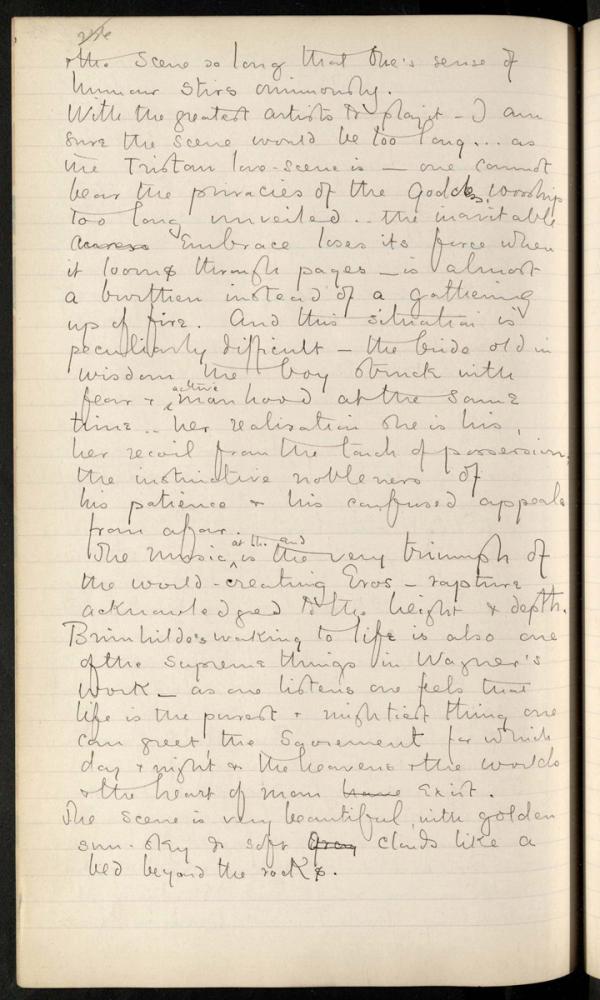 & the scene so long that one's sense of
humour stirs ominously.
With the greatest artists to play it – I am
sure the scene would be too long... as
the Tristan love-scene is – one cannot
bear the privacies of the Goddess' worship
too long unveiled .. the inevitable
caress Embrace loses its force when
it looms through pages – is almost
a burthen instead of a gathering
up of fire. And this situation is
peculiarly difficult – the bride old in
wisdom, the boy struck with
fear & active manhood at the same
time .. her realisation she is his,
her recoil from the touch of possession,
the instinctive nobleness of
his patience & his confused appeals
from afar.
The music, at the end is the very triumph of
the world-creating Eros – rapture
acknowledged to the height & depth.
Brünhilde's waking to life is also one
of the supreme things in Wagner's
work – as one listens one feels that
life is the purest & mightiest thing one
can greet the Sacrement for which
day & night & the heavens & the worlds
& the heart of man have exist.
The scene is very beautiful with golden
sun-sky & soft gray clouds like a
bed beyond the rocks.